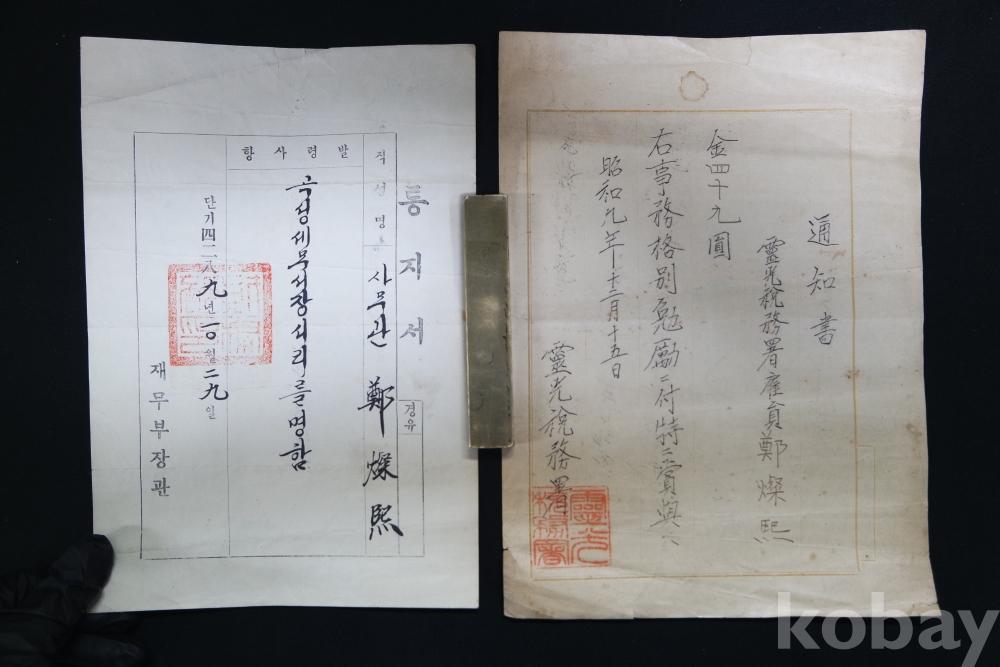 통지서
경유
직성명
사무관 鄭燦熙
발령사항
곡성세무서장서리를명함
단기四二八九년一〇월二九일
재무부장관
通知書
靈光稅務署雇員鄭燦熙
金四十九圓
右事務格別勉勵ニ付特ニ賞與ス
昭和九年十二月十五日
靈光稅務署
靈光稅務署
kobay